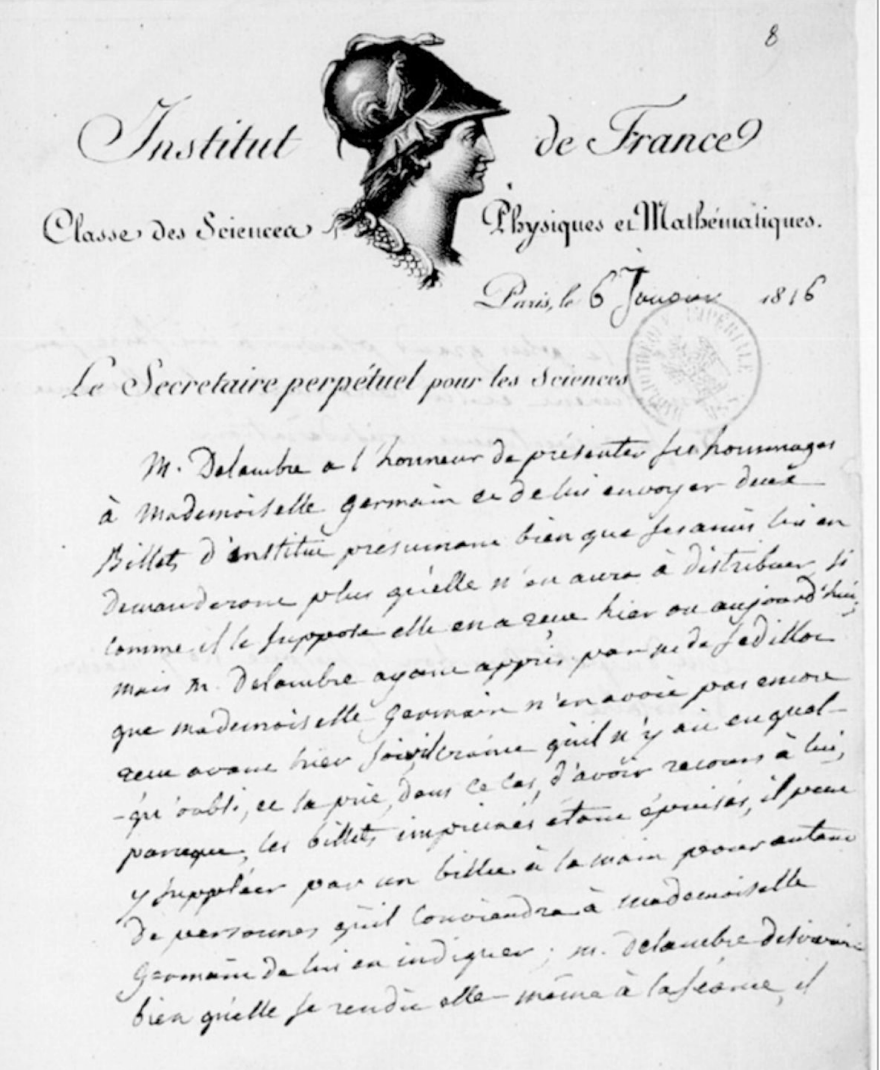 8
Institut de France
Classe des Sciences Physiques et Mathématiques.
Paris, le 6 Janvier 1816
BIBLIOTHÈQUE IMPÉRIALE
Le Secretaire perpétuel pour les Sciences
M. Delambre a l'honneur de présenter ses hommages
à Mademoiselle Germain et de lui envoyer deux
Billets d'institut présumant bien que ses amis lui en
demanderont plus qu'elle n'en aura à distribuer, si
comme il le suppose elle en a reçu hier ou aujourd'hui;
mais M. Delambre ayant appris par M. de Sedillot
que mademoiselle Germain n'en avoit pas encore
reçu avant hier soir, il craint qu'il n'y ait eu quel-
-qu'oubli, et la prie, dans ce cas, d'avoir recours à lui,
parceque, les billets imprimés étant épuisés, il peut
y suppléer par un billet à la main pour autant
de personnes qu'il conviendra à mademoiselle
Germain de lui en indiquer; M. Delambre
bien qu'elle se rendit elle-même à la séance, il